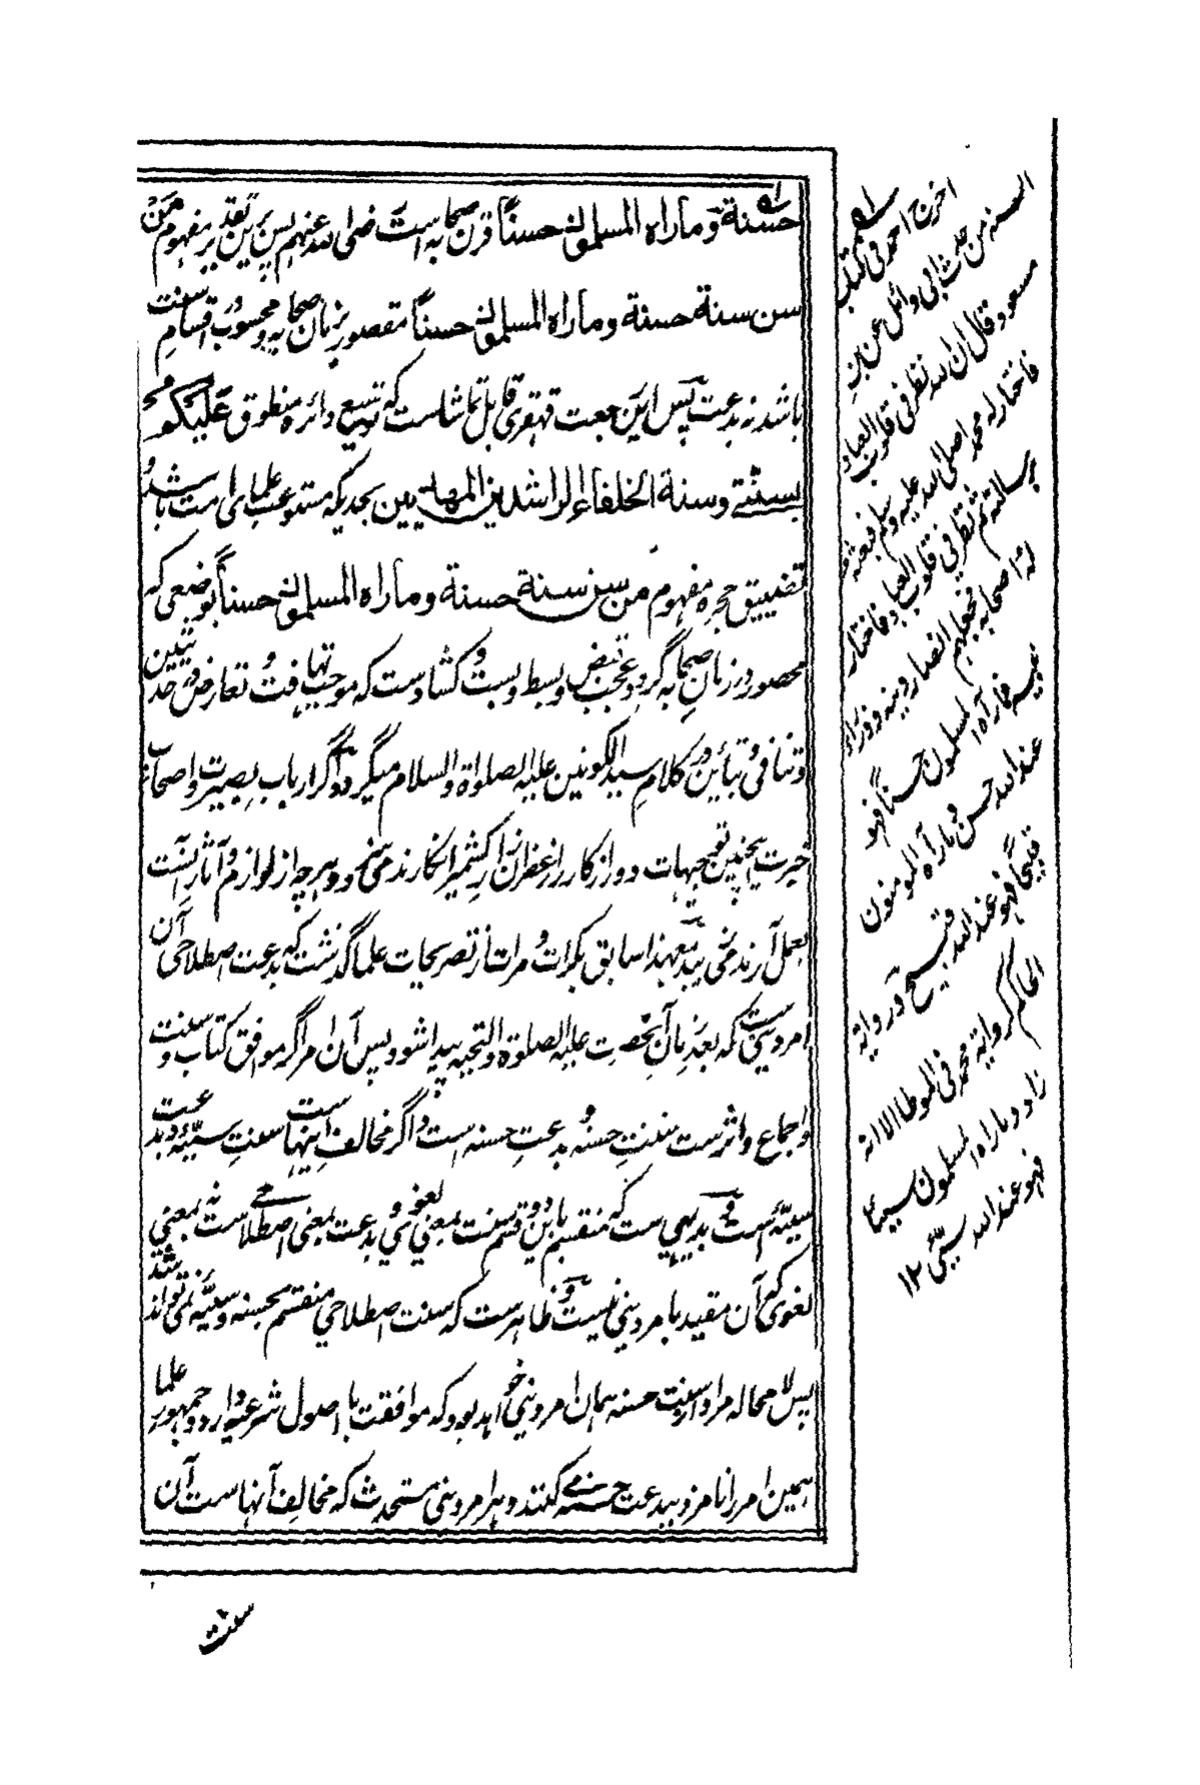 حسنة وماراه المسلمون حسناً قرن صحابه است رضی الله عنهم پس برین تقدیر مفهوم من
سن سنة حسنة وماراه المسلمون حسناً مقصور بزمان صحابه و محسوب در اقسام سنت
باشد نه بدعت پس این رجعت قهقری قابل تماشاست که توسیع دائره منطوق علیکم
بسنتی وسنة الخلفاء الراشدین المهدیین بحدیکه مستوعب علمای امت باشد و
تضییق حجره مفهوم من سن سنة حسنة وماراه المسلمون حسناً بوضعی که
محصور در زمان صحابه گردد عجب قبض و بسط و بست و کشادست که موجب تهافت و تعارض در حدیثین
و تنافی و تباین در کلام سید الکونین علیه الصلواة والسلام میگردد اگر ارباب بصیرت و اصحاب
خبرت بچنین توجیهات دور از کار را زعفران زار کشمیر انگارند می سزد و هرچه از لوازم و آثار آنست
بعمل آرند می زیبد معهذا سابق بکرات و مرات از تصریحات علما گذشت که بدعت اصطلاحی آن
امر دینی ست که بعد زمان آنحضرت علیه الصلوة والتحیه پیدا شود پس آن امر اگر موافق کتاب و سنت
و اجماع و اثرست سنت حسنه و بدعت حسنه است و اگر مخالف اینهاست سنت سیئه و بدعت
سیئه است و بدیهی ست که منقسم باین دو قسم سنت بمعنی لغوی و بدعت بمعنی اصطلاحی ست نه بمعنی
لغوی که آن مقید بامر دینی نیست و ظاهرست که سنت اصطلاحی منقسم بحسنه و سیئه نمی تواند شد
پس لا محاله مراد از سنت حسنه همان امر دینی خواهد بود که موافقت با اصول شرعیه دارد و جمهور علما
همین امر را نامزد ببدعت حسنه می کنند و هر امر دینی مستحدث که مخالف آنهاست آن
سنت
اخرج احمد فی کتاب
السنه من حدیث ابی وائل عن ابن
مسعود قال ان الله نظر فی قلوب العباد
فاختار له محمد اصلی الله علیه وسلم فبعثه
برسالته ثم نظر فی قلوب العباد فاختار
له اصحابه فجعلهم انصار دینه و وزراء
نبیه فما رآه المسلمون حسناً فهو
عند الله حسن و ما رآه المومنون
قبیحاً فهو عند الله قبیح و رواته
الحاکم کروایة محمد فی الموطا الا انه
زاد و ماراه المسلمون سیئا
فهو عند الله سیئ ۱۲